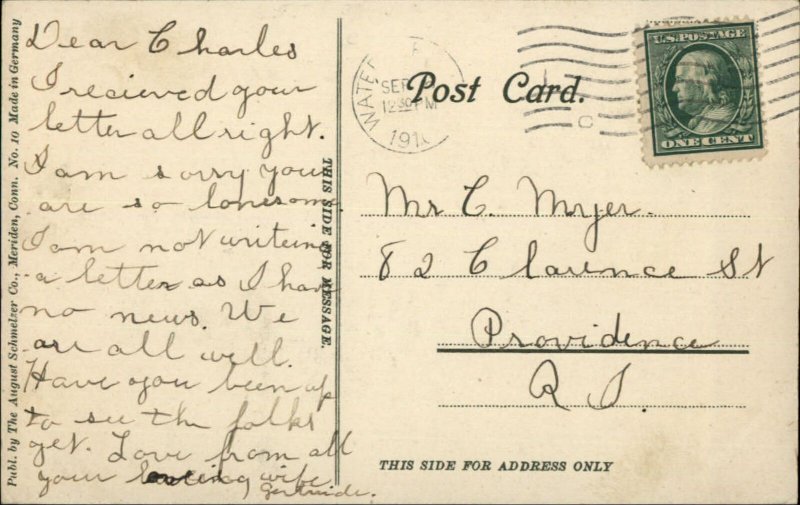 Publ. by The August Schmelzer Co., Meriden, Conn. No. 10 Made in Germany
Dear Charles
I recieved your
letter all right.
I am sorry your
are so lonesome.
I am not writeing
a letter as I have
no news. We
are all well.
Have you been up
to see the folks
yet. Love from all
your loving wife
Gertrude.
THIS SIDE FOR MESSAGE.
WATER
SEP
12 30 PM
191
Post Card.
U.S. POSTAGE
ONE CENT
Mr C. Myer.
82 Clarence St
Providence
R I.
THIS SIDE FOR ADDRESS ONLY